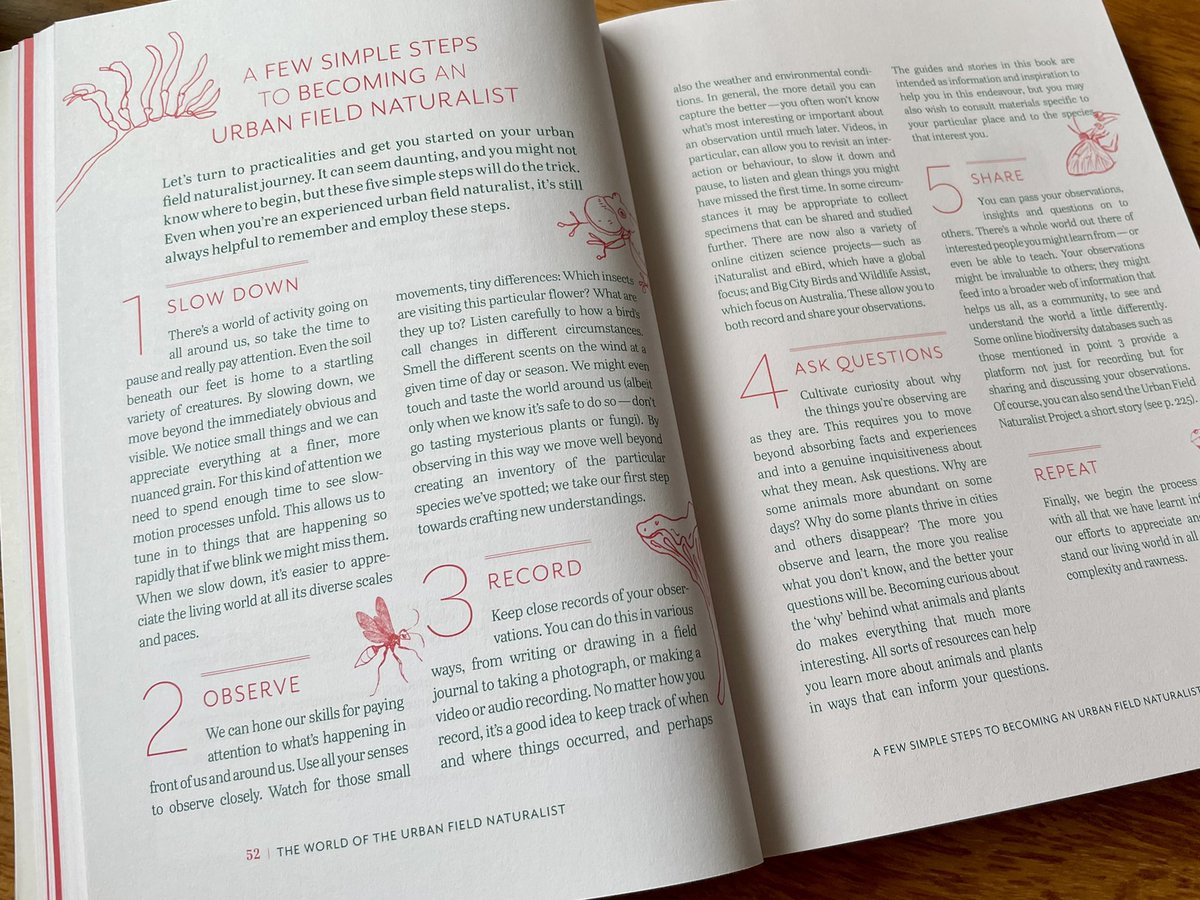 A FEW SIMPLE STEPS
TO BECOMING AN
URBAN FIELD NATURALIST
Let's turn to practicalities and get you started on your urban
field naturalist journey. It can seem daunting, and you might not
know where to begin, but these five simple steps will do the trick.
Even when you're an experienced urban field naturalist, it's still
always helpful to remember and employ these steps.
1 SLOW DOWN
There's a world of activity going on
all around us, so take the time to
pause and really pay attention. Even the soil
beneath our feet is home to a startling
variety of creatures. By slowing down, we
move beyond the immediately obvious and
visible. We notice small things and we can
appreciate everything at a finer, more
nuanced grain. For this kind of attention we
need to spend enough time to see slow-
motion processes unfold. This allows us to
tune in to things that are happening so
rapidly that if we blink we might miss them.
When we slow down, it's easier to appre-
ciate the living world at all its diverse scales
and paces.
2 OBSERVE
We can hone our skills for paying
attention to what's happening in
front of us and around us. Use all your senses
to observe closely. Watch for those small
movements, tiny differences: Which insects
are visiting this particular flower? What are
they up to? Listen carefully to how a bird's
call changes in different circumstances.
Smell the different scents on the wind at a
given time of day or season. We might even
touch and taste the world around us (albeit
only when we know it's safe to do so — don't
go tasting mysterious plants or fungi). By
observing in this way we move well beyond
creating an inventory of the particular
species we've spotted; we take our first step
towards crafting new understandings.
3 RECORD
Keep close records of your obser-
vations. You can do this in various
ways, from writing or drawing in a field
journal to taking a photograph, or making a
video or audio recording. No matter how you
record, it's a good idea to keep track of when
and where things occurred, and perhaps
52 | THE WORLD OF THE URBAN FIELD NATURALIST
also the weather and environmental condi-
tions. In general, the more detail you can
capture the better — you often won't know
what's most interesting or important about
an observation until much later. Videos, in
particular, can allow you to revisit an inter-
action or behaviour, to slow it down and
pause, to listen and glean things you might
have missed the first time. In some circum-
stances it may be appropriate to collect
specimens that can be shared and studied
further. There are now also a variety of
online citizen science projects — such as
iNaturalist and eBird, which have a global
focus; and Big City Birds and Wildlife Assist,
which focus on Australia. These allow you to
both record and share your observations.
4 ASK QUESTIONS
Cultivate curiosity about why
the things you're observing are
as they are. This requires you to move
beyond absorbing facts and experiences
and into a genuine inquisitiveness about
what they mean. Ask questions. Why are
some animals more abundant on some
days? Why do some plants thrive in cities
and others disappear? The more you
observe and learn, the more you realise
what you don't know, and the better your
questions will be. Becoming curious about
the 'why' behind what animals and plants
do makes everything that much more
interesting. All sorts of resources can help
you learn more about animals and plants
in ways that can inform your questions.
The guides and stories in this book are
intended as information and inspiration to
help you in this endeavour, but you may
also wish to consult materials specific to
your particular place and to the species
that interest you.
5 SHARE
You can pass your observations,
insights and questions on to
others. There's a whole world out there of
interested people you might learn from — or
even be able to teach. Your observations
might be invaluable to others; they might
feed into a broader web of information that
helps us all, as a community, to see and
understand the world a little differently.
Some online biodiversity databases such as
those mentioned in point 3 provide a
platform not just for recording but for
sharing and discussing your observations.
Of course, you can also send the Urban Field
Naturalist Project a short story (see p. 225).
REPEAT
Finally, we begin the process
with all that we have learnt in
our efforts to appreciate an
stand our living world in all
complexity and rawness.
A FEW SIMPLE STEPS TO BECOMING AN URBAN FIELD NATURALIST